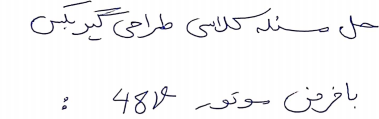 حل مسئله کلاسی طراحی گیربکس
با فرض موتور 48V :